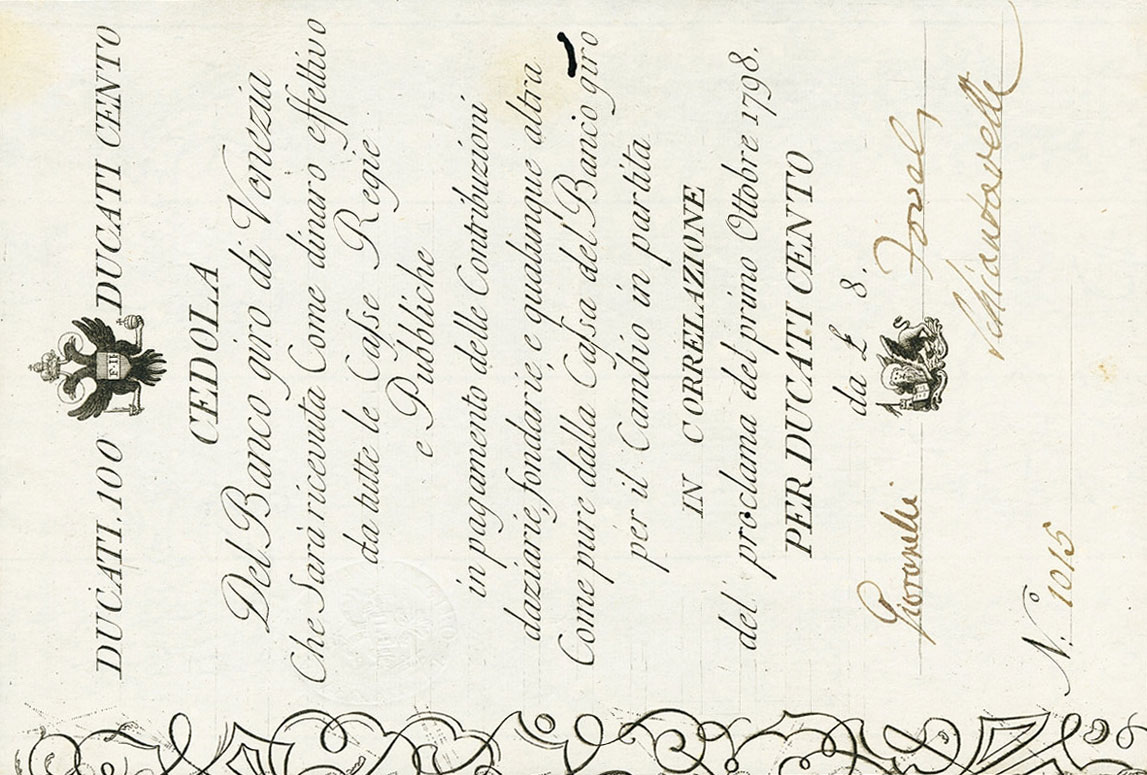 DUCATI. 100 DUCATI CENTO
CEDOLA
Del Banco giro di Venezia
Che Sarà ricevuta Come dinaro effettivo
da tutte le Casse Regie
e Pubbliche
in pagamento delle Contribuzioni
daziarie, fondarie, e qualunque altra
Come pure dalla Cassa del Banco giro
per il Cambio in partita
IN CORRELAZIONE
del' proclama del primo Ottobre 1798.
PER DUCATI CENTO
da £ 8.
Giovanelli
Schiantarelli
N.o 1015